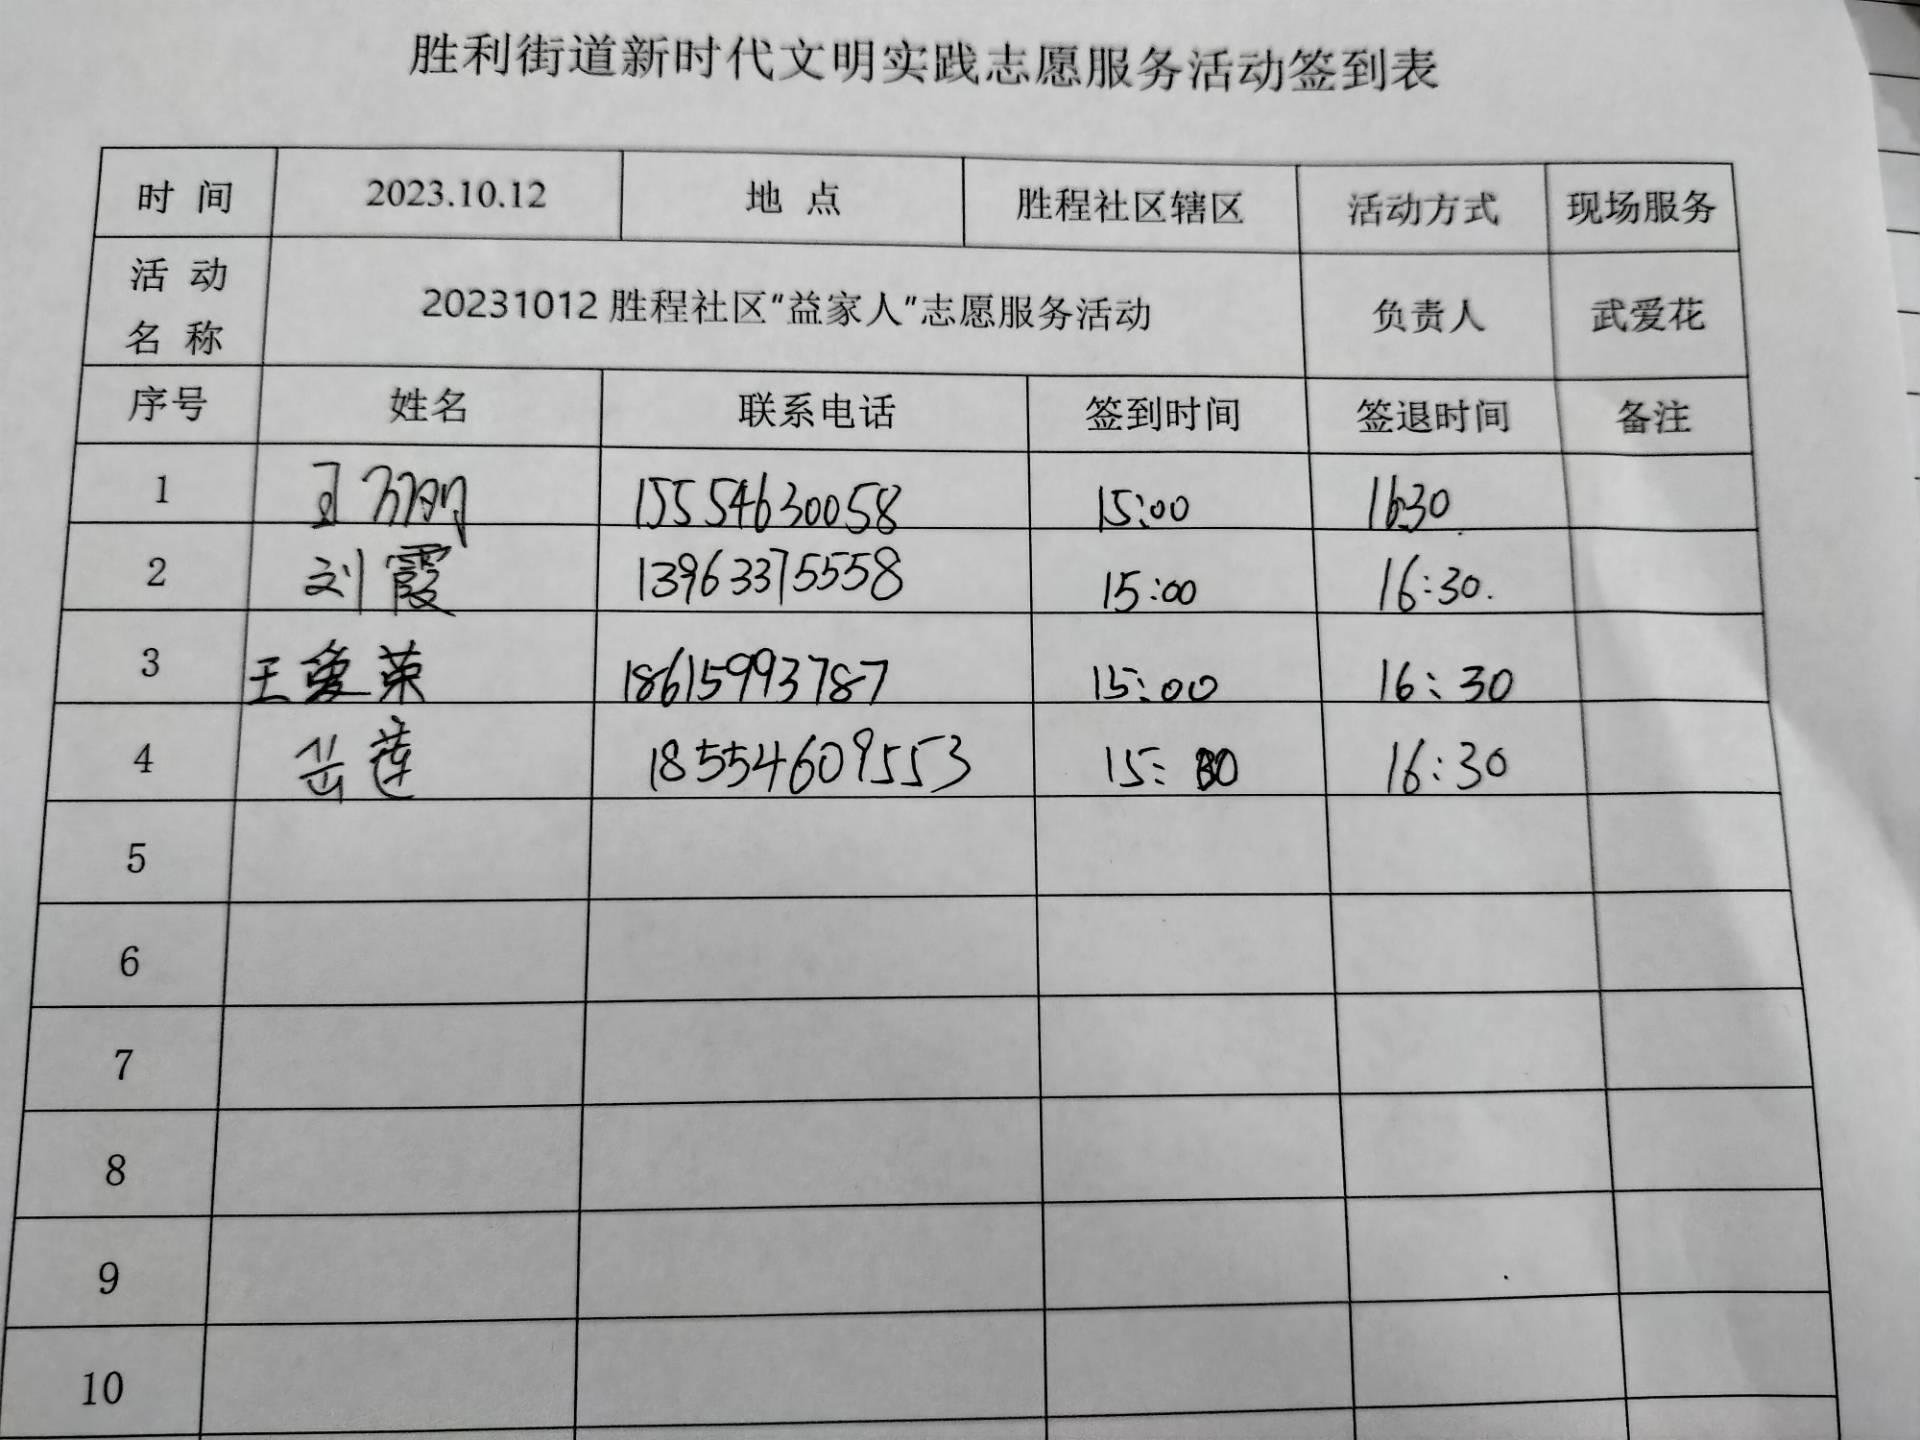 胜利街道新时代文明实践志愿服务活动签到表
时 间 2023.10.12 地 点 胜程社区辖区 活动方式 现场服务
活 动
名 称 20231012胜程社区“益家人”志愿服务活动 负责人 武爱花
序号 姓名 联系电话 签到时间 签退时间 备注
1 王 15554630058 15:00 1630
2 刘霞 13963375558 15:00 16:30.
3 王爱荣 18615993787 15:00 16:30
4 岳莲 18554609553 15: 16:30
5
6
7
8
9
10